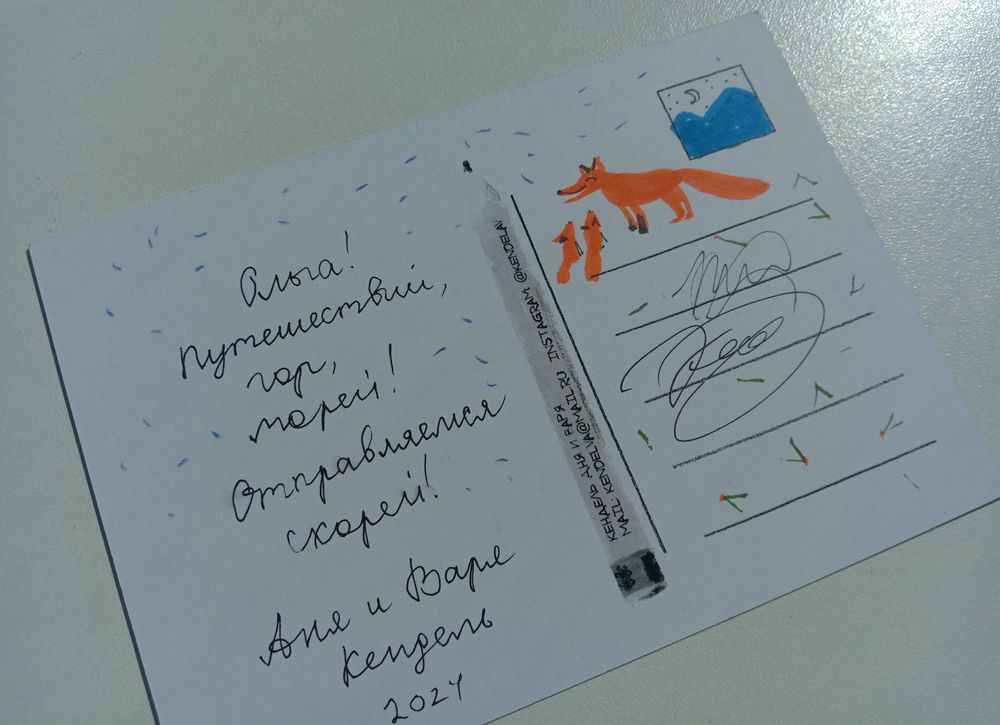 Ольга!
Путешествий,
гор,
морей!
Отправляемся
скорей!
Аня и Варя
Кендель
2024
КЕНДЕЛЬ АНЯ И ВАРЯ INSTAGRAM: @KENDELAV
MAIL: KENDELVA@MAIL.RU